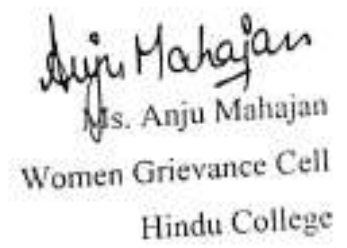 Anju Mahajan
Ms. Anju Mahajan
Women Grievance Cell
Hindu College